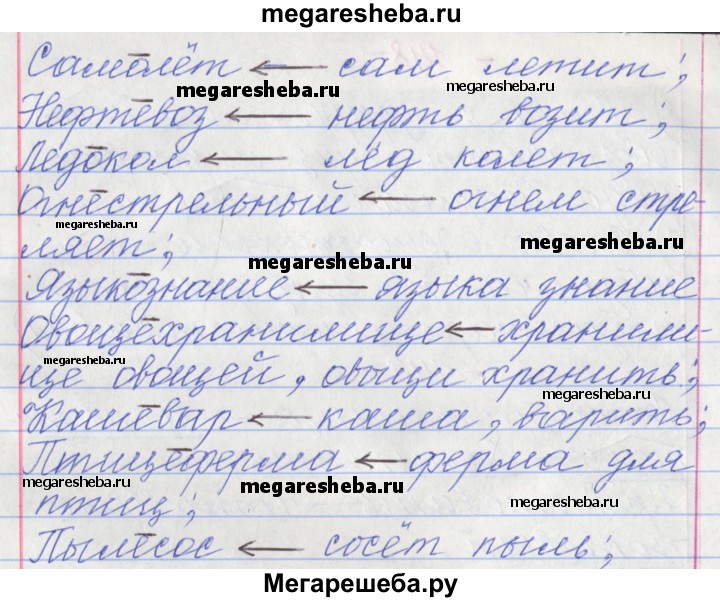 megaresheba.ru
Самолёт ← сам летит;
megaresheba.ru
megaresheba.ru
Нефтевоз ← нефть возит;
Ледокол ← лёд колет;
Огнестрельный ← огнем стре-
megaresheba.ru
ляет;
megaresheba.ru
megaresheba.ru
Языкознание ← языка знание
Овощехранилище ← хранили-
megaresheba.ru
ще овощей, овощи хранить;
megaresheba.ru
Кашевар ← каша, варить;
megaresheba.ru
Птицеферма ← ферма для
megaresheba.ru
megaresheba.ru
птиц;
megaresheba.ru
Пылесос ← сосёт пыль;
Мегарешеба.ру